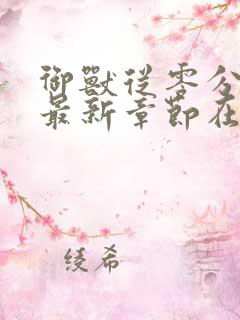 御獸從零分
最新章節在
綾希